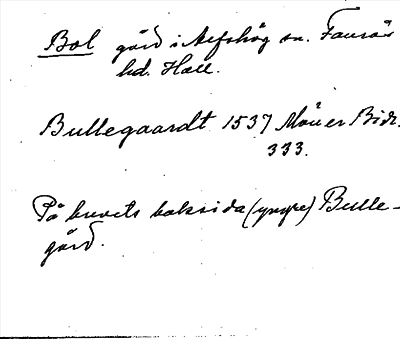 Bol gård i Alfshög sn. Faurås
hd. Hall.
Bullegaardt 1537 Måuer Bidr.
333.
På brevets baksida (yngre) Bulle-
gård.